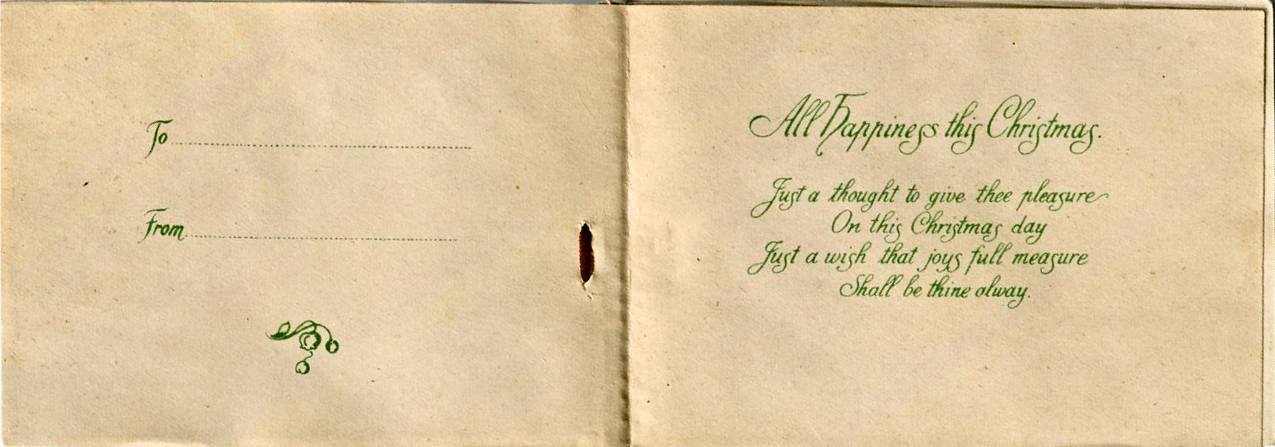 To
From
All Happiness this Christmas.
Just a thought to give thee pleasure
On this Christmas day
Just a wish that joys full measure
Shall be thine alway.